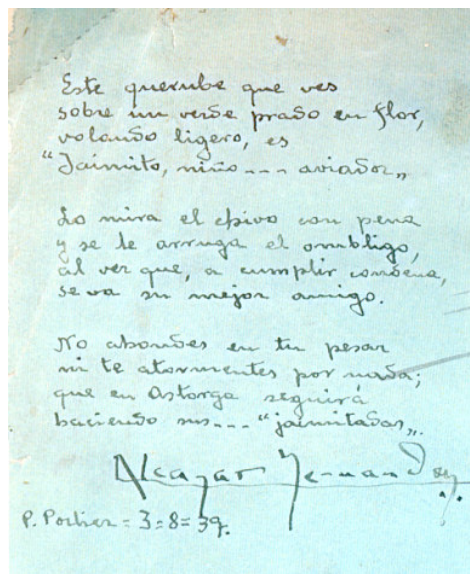 Este querube que ves
sobre un verde prado en flor,
volando ligero, es
“Jaimito, niño --- aviador„
Lo mira el chivo con pena
y se le arruga el ombligo,
al ver que, a cumplir condena,
se va su mejor amigo.
No ahondes en tu pesar
ni te atormentes por nada;
que en Astorga seguirá
haciendo sus--- “jaimitadas„.
Alcazar Fernandez
P. Portier = 3=8=39.